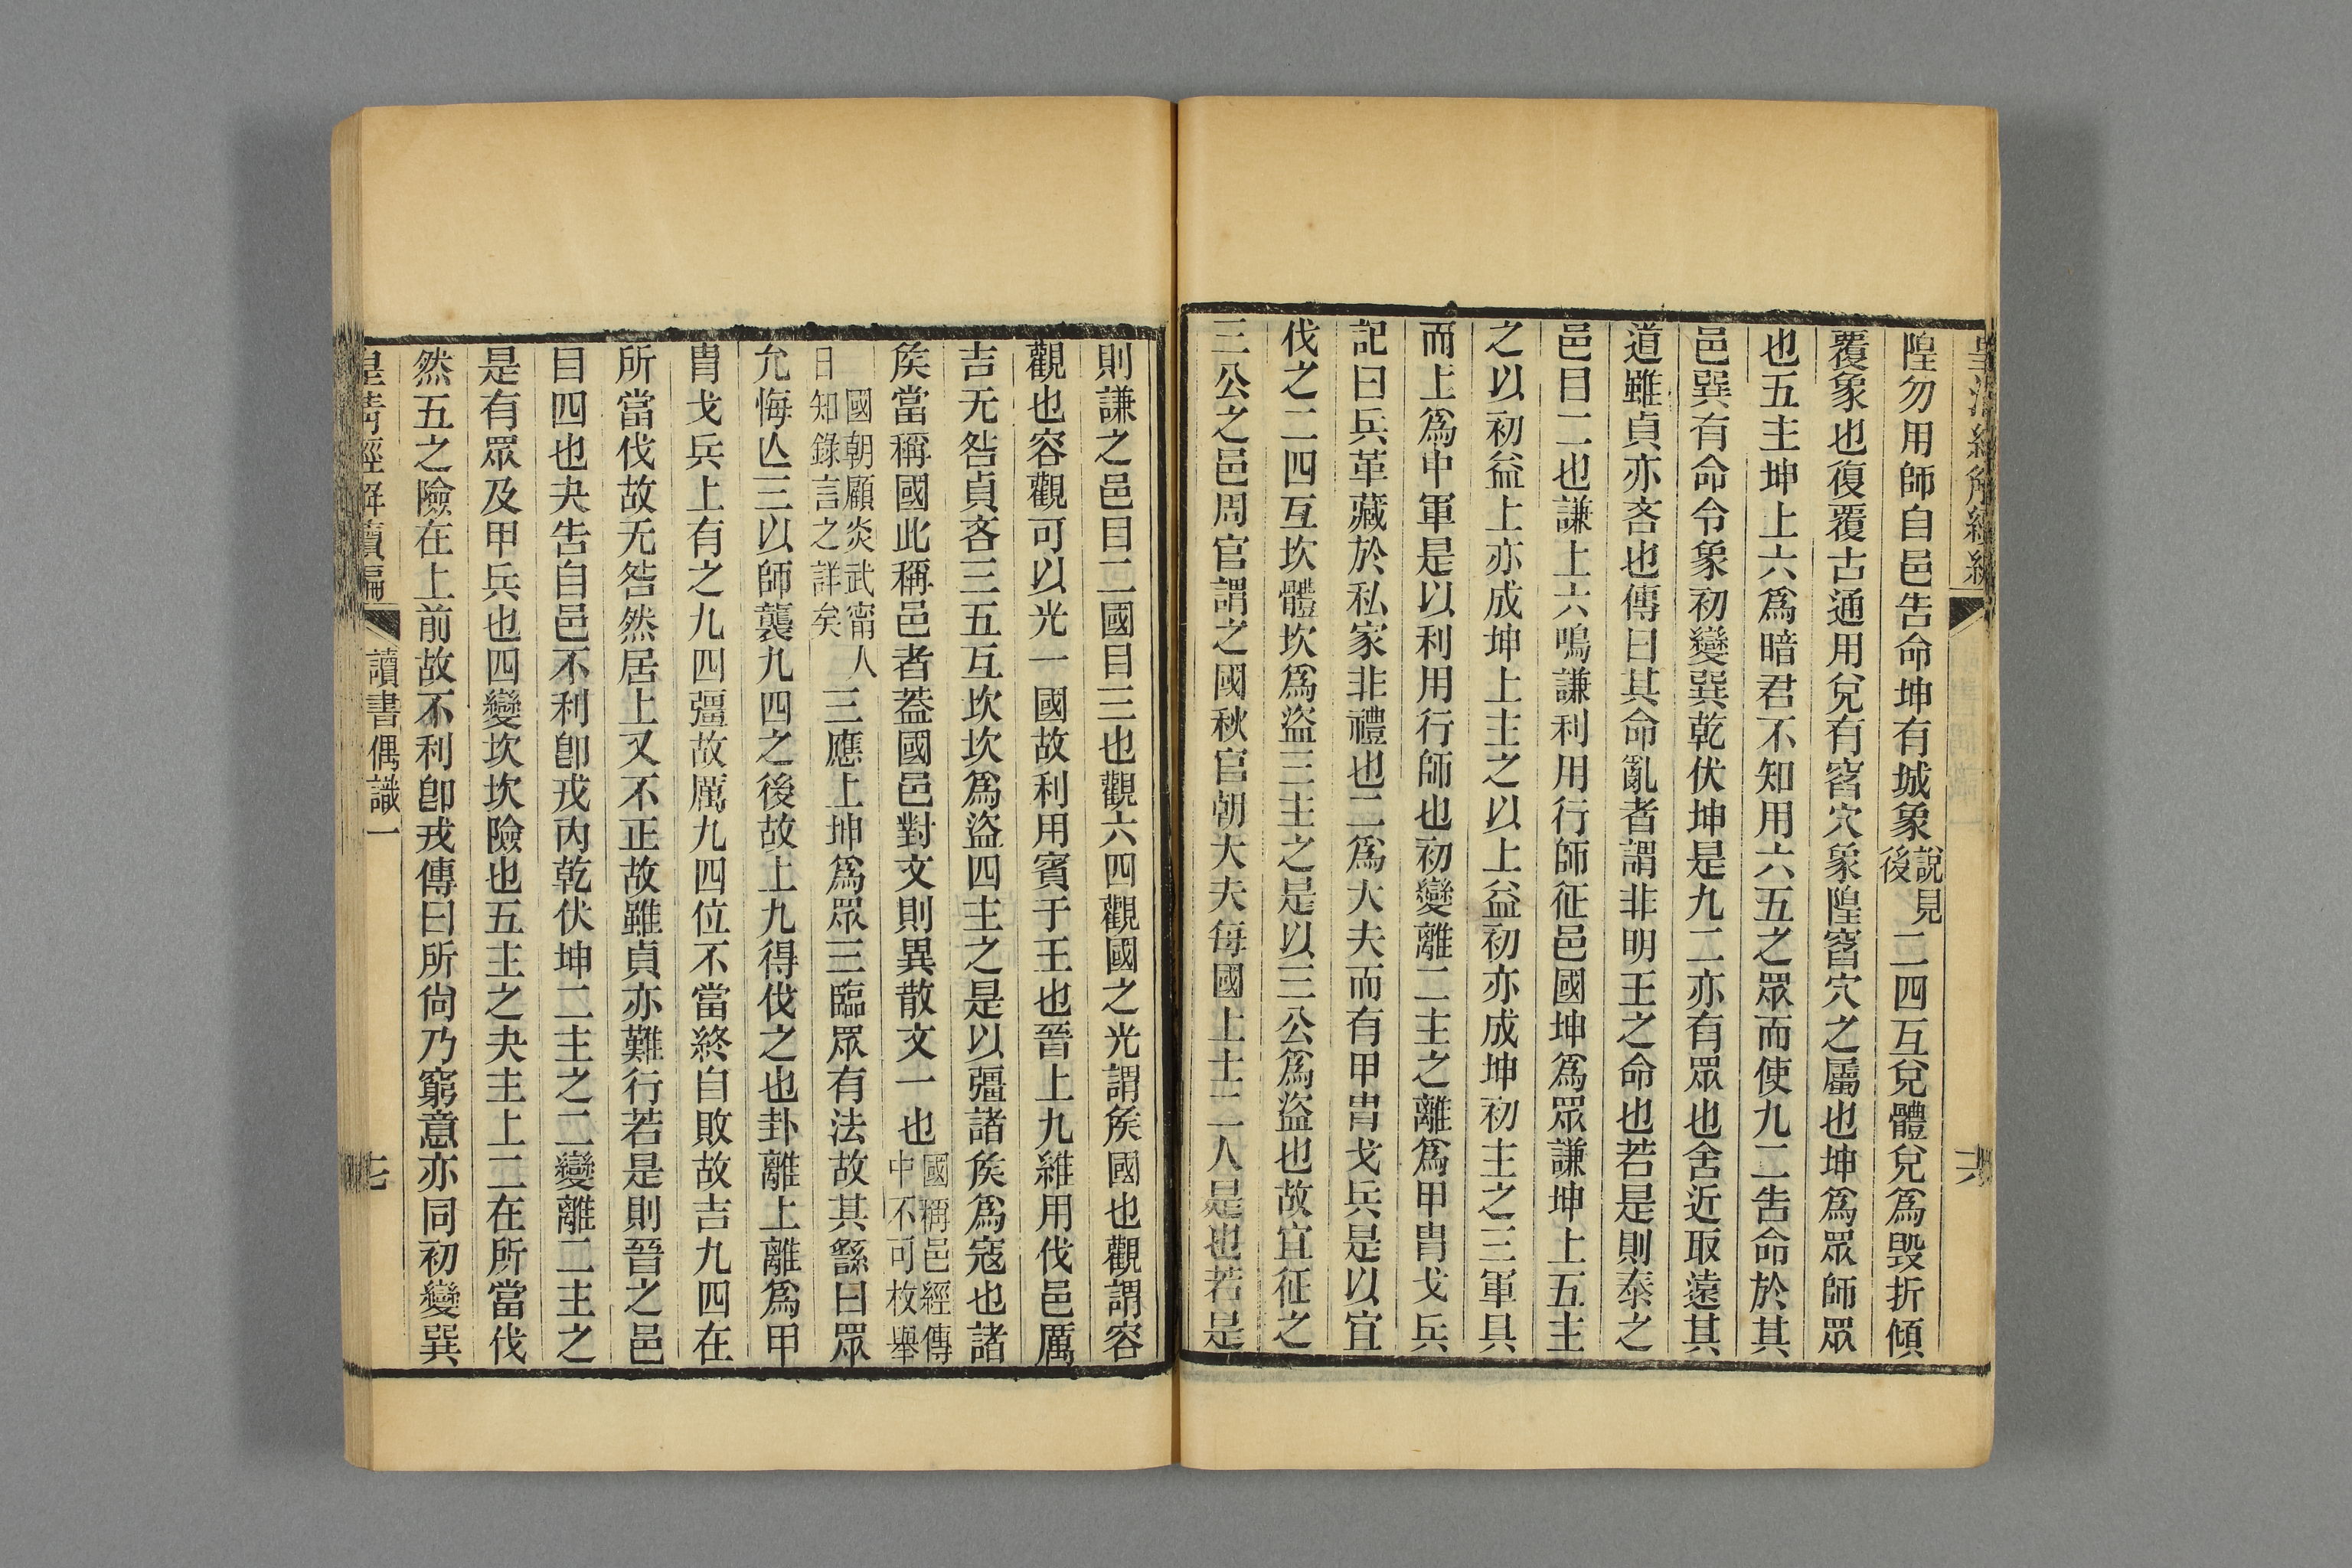 隍勿用師自邑告命坤有城象說見後二四互兌體兌爲毀折傾
覆象也復覆古通用兌有窞穴象隍窞穴之屬也坤爲眾師眾
也五主坤上六爲暗君不知用六五之眾而使九二告命於其
邑巽有命令象初變巽乾伏坤是九二亦有眾也舍近取遠其
道雖貞亦吝也傳曰其命亂者謂非明王之命也若是則泰之
邑目二也謙上六鳴謙利用行師征邑國坤爲眾謙坤上五主
之以初益上亦成坤上主之以上益初亦成坤初主之三軍具
而上爲中軍是以利用行師也初變離二主之離爲甲冑戈兵
記曰兵革藏於私家非禮也二爲大夫而有甲冑戈兵是以宜
伐之二四互坎體坎爲盜三主之是以三公爲盜也故宜征之
三公之邑周官謂之國秋官朝大夫每國上士二人是也若是
則謙之邑目二國目三也觀六四觀國之光謂矦國也觀謂容
觀也容觀可以光一國故利用賓于王也晉上九維用伐邑厲
吉无咎貞吝三五互坎坎爲盜四主之是以彊諸矦爲寇也諸
矦當稱國此稱邑者葢國邑對文則異散文一也國稱邑經傳中不可枚舉
國朝顧炎武甯人日知錄言之詳矣三應上坤爲眾三臨眾有法故其繇曰眾
允悔亾三以師襲九四之後故上九得伐之也卦離上離爲甲
冑戈兵上有之九四彊故厲九四位不當終自敗故吉九四在
所當伐故无咎然居上又不正故雖貞亦難行若是則晉之邑
目四也夬告自邑不利卽戎內乾伏坤二主之二變離二主之
是有眾及甲兵也四變坎坎險也五主之夬主上二在所當伐
然五之險在上前故不利卽戎傳曰所尙乃窮意亦同初變巽
皇清經解續編
讀書偶識一